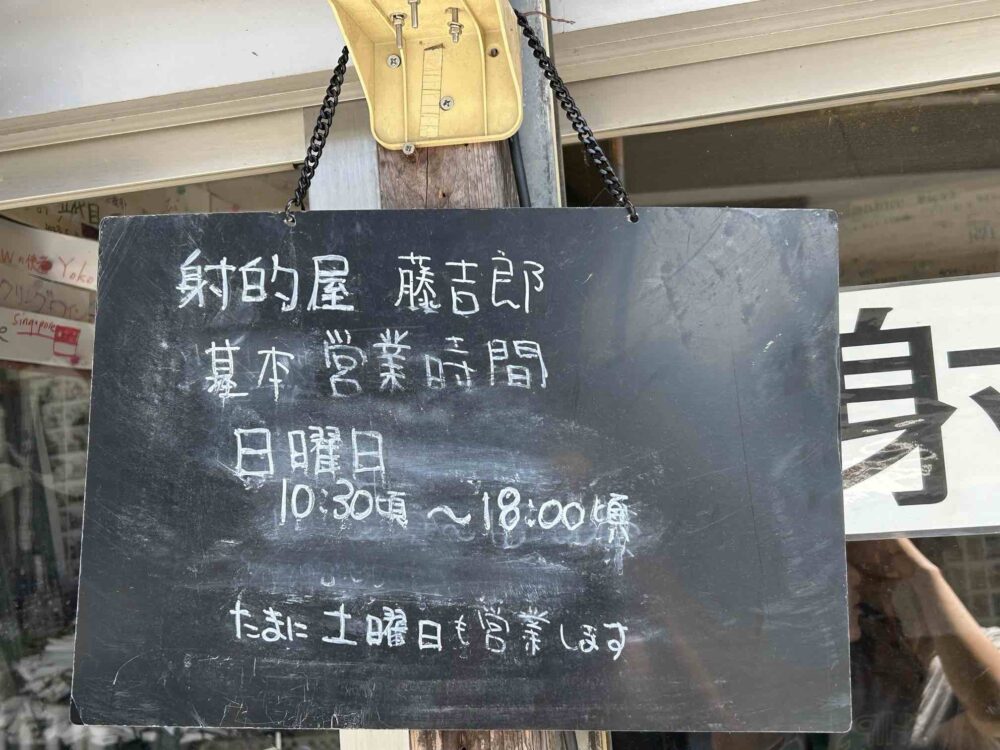 射的屋 藤吉郎
基本 営業時間
日曜日
10:30頃 ～18:00頃
たまに 土曜日も営業します
Yoko
Singapore
射